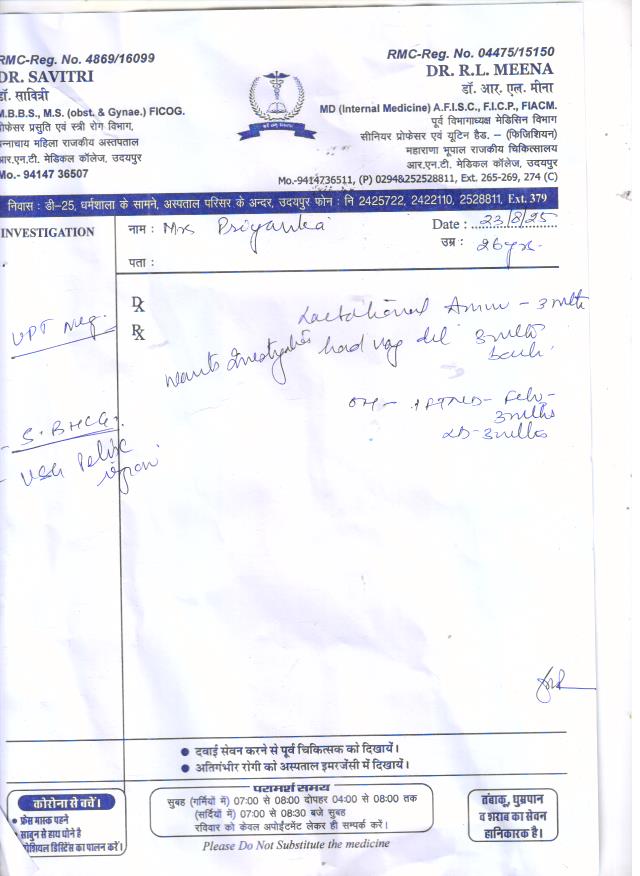 RMC-Reg. No. 4869/16099
DR. SAVITRI
डॉ. सावित्री
M.B.B.S., M.S. (obst. & Gynae.) FICOG.
प्रोफेसर प्रसुति एवं स्त्री रोग विभाग,
पन्नाधाय महिला राजकीय अस्तपाल
आर.एन.टी. मेडिकल कॉलेज, उदयपुर
Mo.- 94147 36507
RMC-Reg. No. 04475/15150
DR. R.L. MEENA
डॉ. आर. एल. मीना
MD (Internal Medicine) A.F.I.S.C., F.I.C.P., FIACM.
पूर्व विभागाध्यक्ष मेडिसिन विभाग
सीनियर प्रोफेसर एवं यूटिन हैड. – (फिजिशियन)
महाराणा भूपाल राजकीय चिकित्सालय
आर.एन.टी. मेडिकल कॉलेज, उदयपुर
Mo.-9414736511, (P) 0294&252528811, Ext. 265-269, 274 (C)
निवास : डी-25, धर्मशाला के सामने, अस्पताल परिसर के अन्दर, उदयपुर फोन : नि 2425722, 2422110, 2528811, Ext. 379
INVESTIGATION
नाम : Mrs Priyanka
Date : 23/8/25
उम्र : 26 yr.
पता :
Dx
Lactational Amm - 3 mth
Rx
Wants Investigation had vag del 3 mths
back
OH - 1 FTND - Feb -
3 mths
LD - 3 mths
UPT Neg.
- S. BHCG
- USG Pelvic
region
दवाई सेवन करने से पूर्व चिकित्सक को दिखायें।
अतिगंभीर रोगी को अस्पताल इमरजेंसी में दिखायें।
कोरोना से बचें।
फ्रेस मास्क पहने
साबुन से हाथ धोने है
सोशियल डिस्टिंस का पालन करें।
परामर्श समय
सुबह (गर्मियों में) 07:00 से 08:00 दोपहर 04:00 से 08:00 तक
(सर्दियों में) 07:00 से 08:30 बजे सुबह
रविवार को केवल अपोईंटमेंट लेकर ही सम्पर्क करें।
Please Do Not Substitute the medicine
तंबाकू, धुम्रपान
व शराब का सेवन
हानिकारक है।